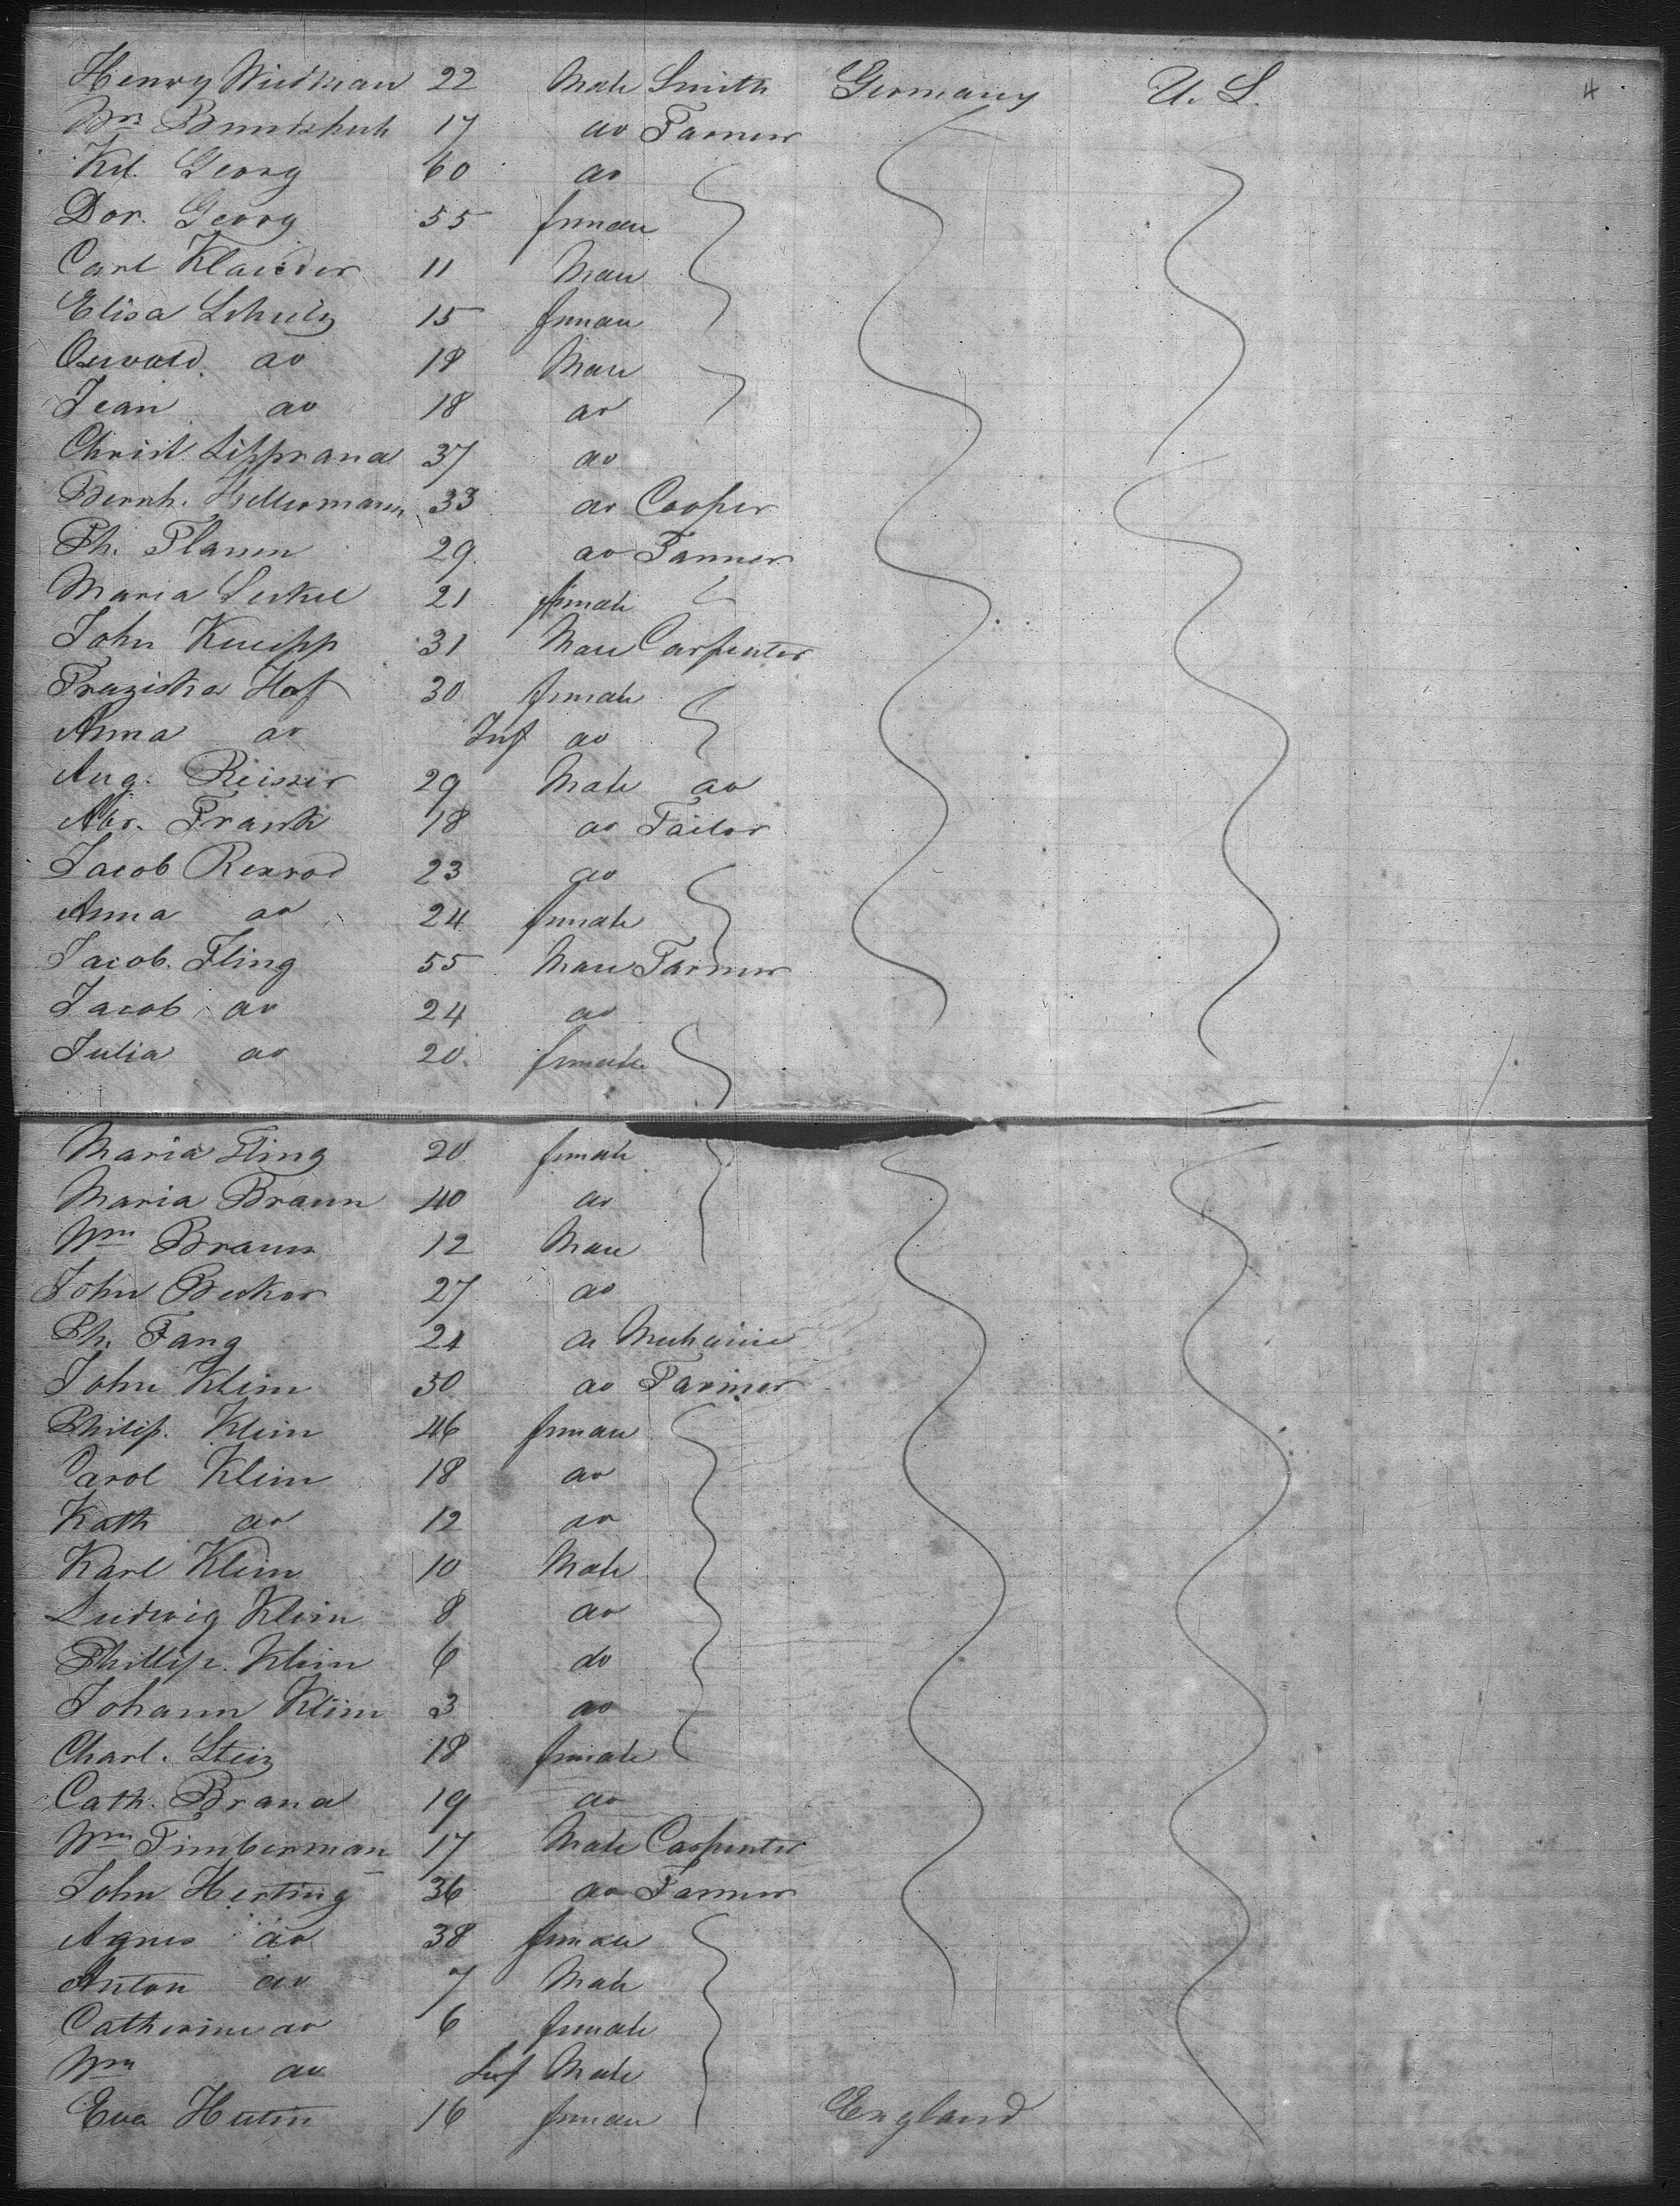 Henry Wiedman 22 Male Smith Germany U. S. 4
Wm 17 do Farmer
Kd. Georg 60 do
Dor. Georg 55 female
Carl Klaeder 11 Male
Elisa Schulz 15 female
Oswald do 18 Male
Jean do 18 do
Christ. Lipprand 37 do
Bernh. Hellermann 33 do Cooper
Ph. Flamm 29 do Farmer
Maria Seckel 21 female
John Kneipp 31 Male Carpenter
Franziska Hof 30 female
Anna do Inf do
Aug. Reisser 29 Male do
Abr. Frank 18 do Tailor
Jacob Rexrod 23 do
Anna do 24 female
Jacob. Fling 55 Male Farmer
Jacob do 24 do
Julia do 20 female
Maria Fling 20 female
Maria Braun 40 do
Wm Braun 12 Male
John Becker 27 do
Ph. Fang 24 do Mechanic
John Klein 50 do Farmer
Philip. Klein 46 female
Carol Klein 18 do
Kath do 12 do
Karl Klein 10 Male
Ludwig Klein 8 do
Phillip. Klein 6 do
Johann Klein 3 do
Charl. Steiz 18 female
Cath. Brand 19 do
Wm Timberman 17 Male Carpenter
John Herting 36 do Farmer
Agnes do 38 female
Anton do 7 Male
Catherine do 6 female
Wm do Inf Male
Eva Hutin 16 female England